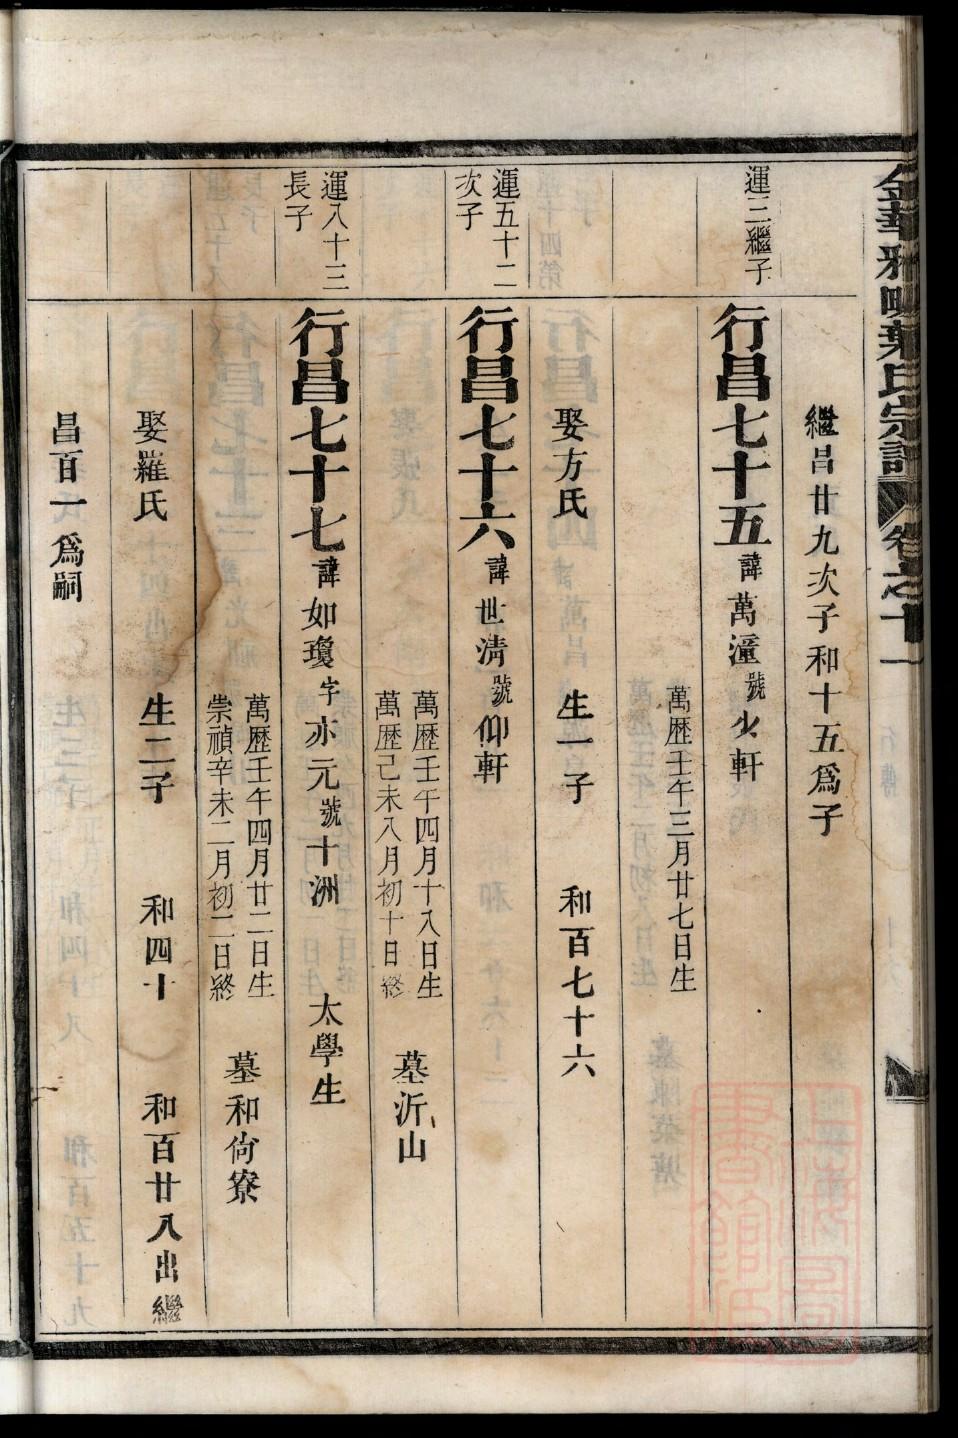 繼昌廿九次子和十五爲子
運三繼子
行昌七十五諱萬潼號少軒
萬歷壬午三月廿七日生
娶方氏 生一子 和百七十六
運五十二次子
行昌七十六諱世清號仰軒
萬歷壬午四月十八日生
萬歷己未八月初十日終
墓沂山
運八十三長子
行昌七十七諱如瓊字亦元號十洲 太學生
萬歷壬午四月廿二日生
崇禎辛未二月初二日終
墓和尙寮
娶羅氏 生二子 和四十 和百廿八出繼
昌百一爲嗣